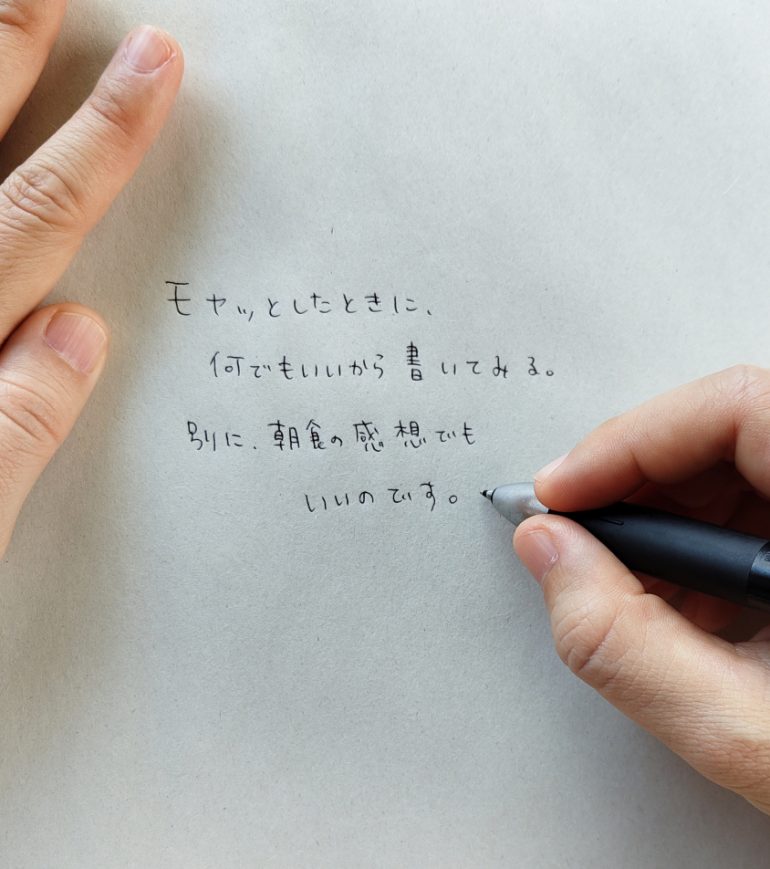 モヤッとしたときに、
何でもいいから書いてみる。
別に、朝食の感想でも
いいのです。